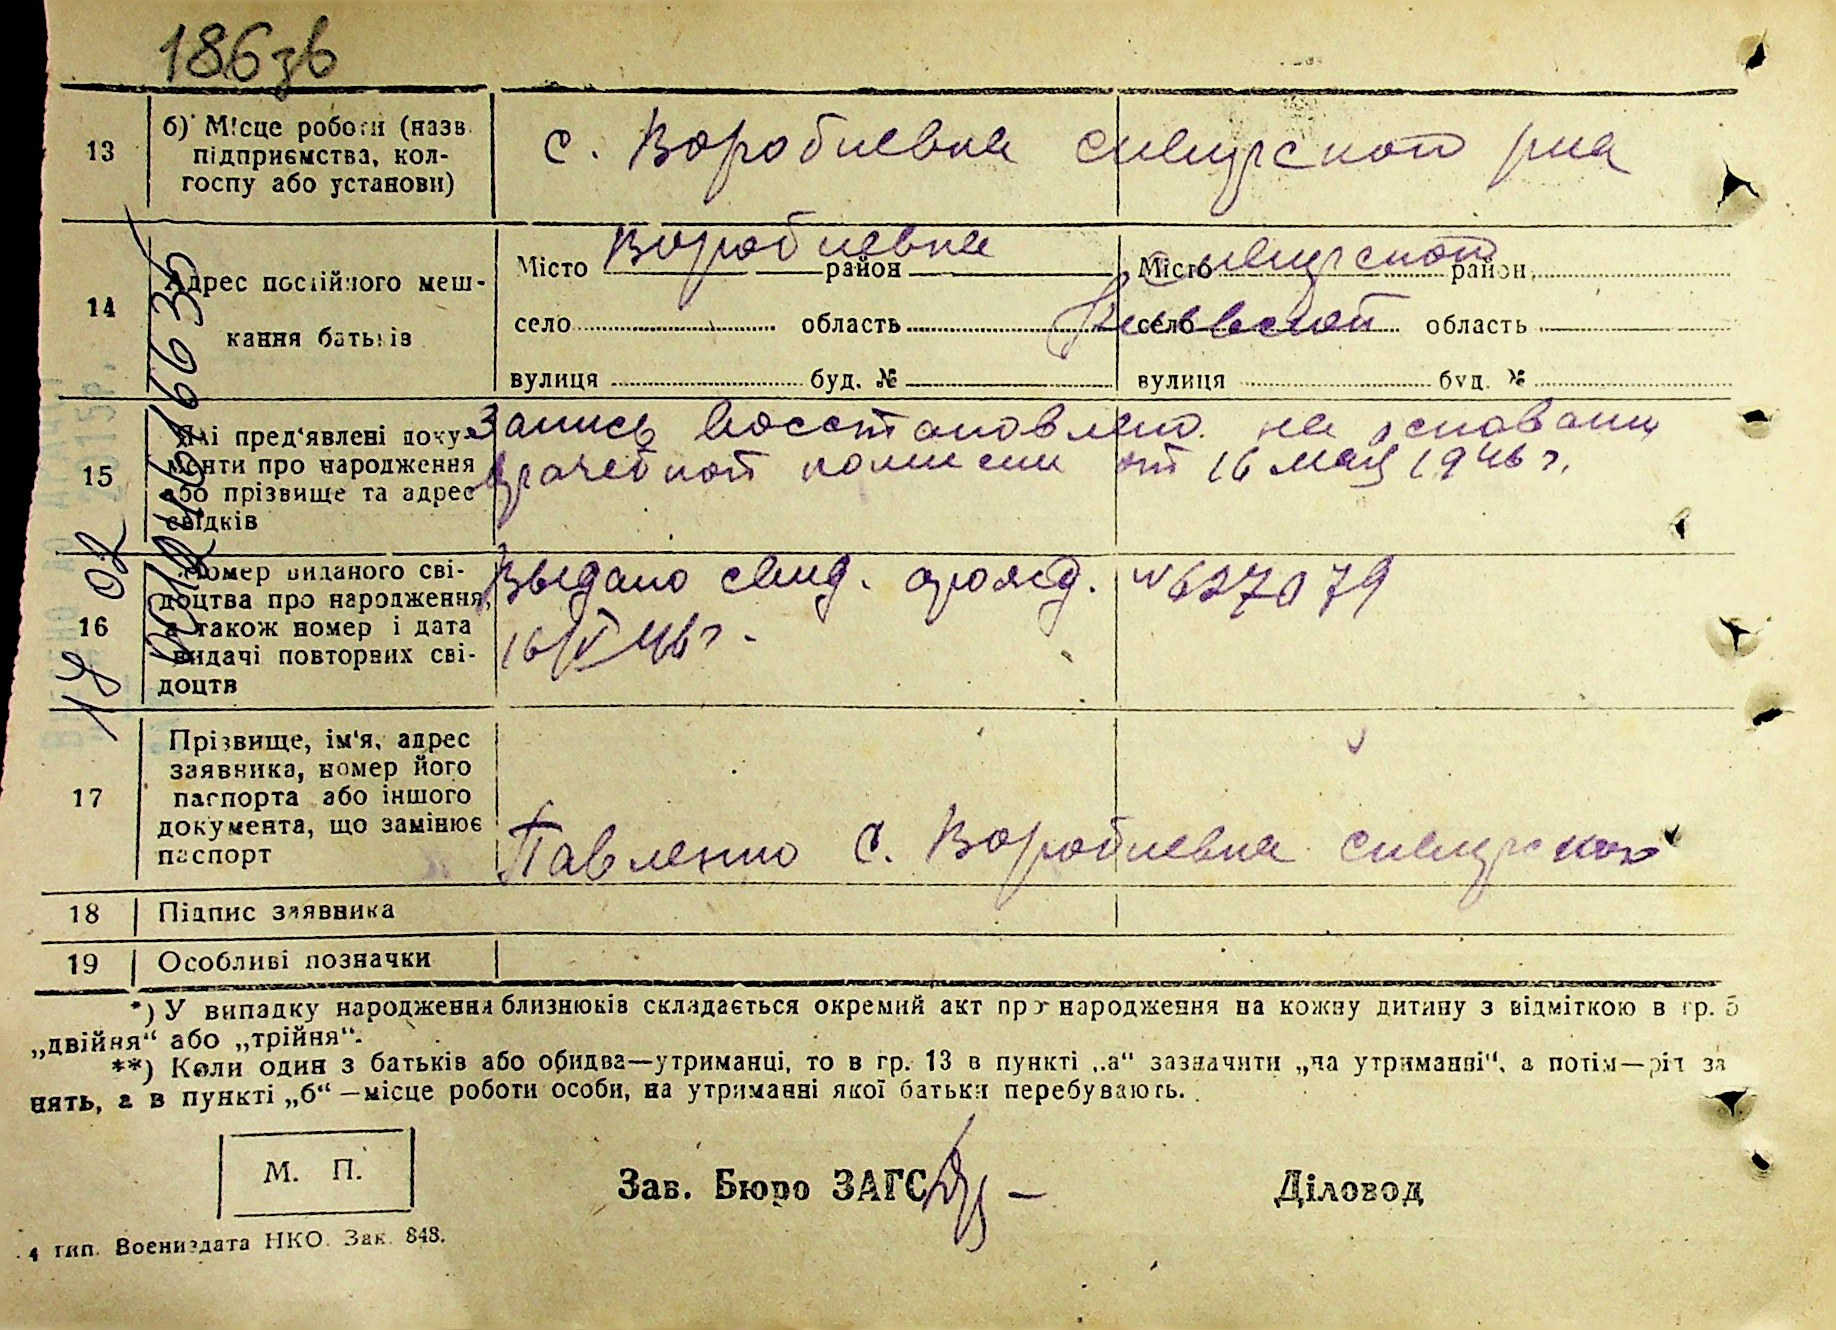 186 зв
13 б) Місце роботи (назв. с. Воробиевка сквирского р-на
підприємства, кол-
госпу або установи)
14 Адрес постійного меш-
кання батьків
Місто Воробиевка район Місто Сквирского район
село область село Киевской область
вулиця буд. № вулиця буд. №
15 Які пред'явлені доку-
менти про народження
або прізвище та адрес
свідків
Запись восстановлено на основании
врачебной комисии от 16 мая 1946 г.
16 Номер виданого сві-
доцтва про народження,
а також номер і дата
видачі повторних сві-
доцтв
Выдано свид. о рожд. № 627079
16/V 46 г.
17 Прізвище, ім'я, адрес
заявника, номер його
паспорта або іншого
документа, що замінює
паспорт
Павленко с. Воробиевка сквирского
18 Підпис заявника
19 Особливі позначки
*) У випадку народження близнюків складається окремий акт про народження на кожну дитину з відміткою в гр. 5
„двійня“ або „трійня“.
**) Коли один з батьків або обидва—утриманці, то в гр. 13 в пункті „а“ зазначити „на утриманні“, а потім—рід за
нять, а в пункті „б“ —місце роботи особи, на утриманні якої батьки перебувають.
М. П.
Зав. Бюро ЗАГС Діловод
4 тип. Воениздата НКО. Зак. 843.